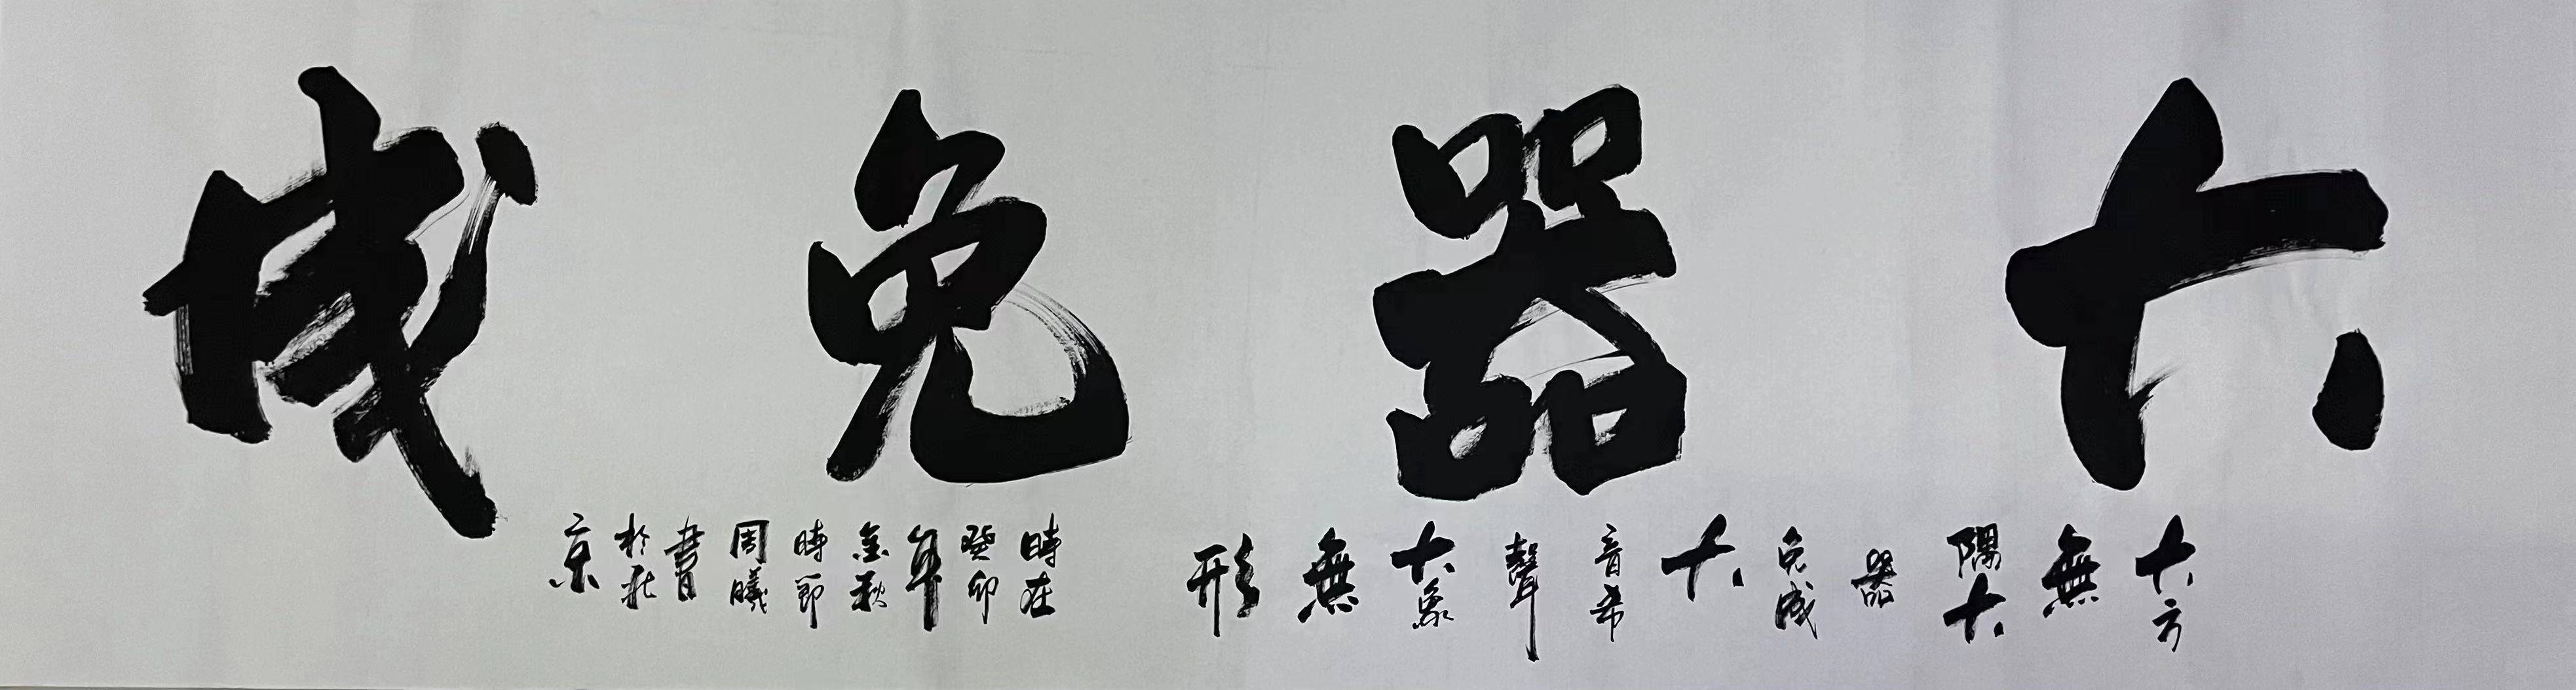 大器免成
大方
無
隅大
器
免成
大
音希
聲
大象
無
形
時在
癸卯
年
金秋
時節
周曦
書
於北
京